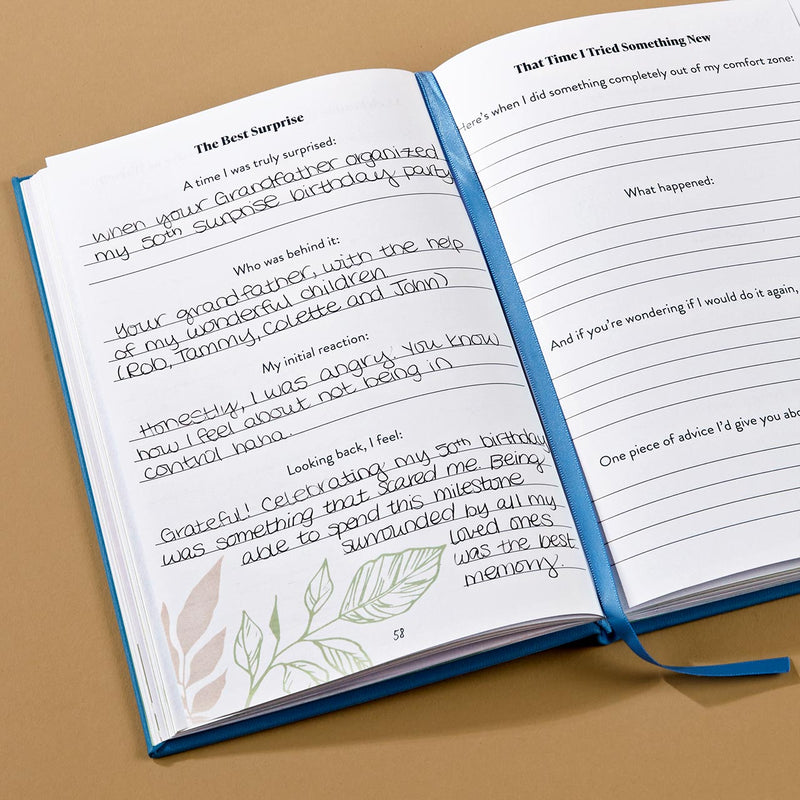 The Best Surprise
A time I was truly surprised:
when your Grandfather organized
my 50th surprise birthday party
Who was behind it:
Your grandfather, with the help
of my wonderful children
(Rob, Tammy, Colette and John)
My initial reaction:
Honestly, I was angry. You know
how I feel about not being in
control haha.
Looking back, I feel:
Grateful! Celebrating my 50th birthday
was something that scared me. Being
able to spend this milestone
surrounded by all my
loved ones
was the best
memory.
58
That Time I Tried Something New
Here's when I did something completely out of my comfort zone:
What happened:
And if you're wondering if I would do it again,
One piece of advice I'd give you abo